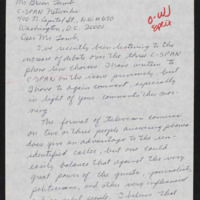 Mr Brian Lamb
C-SPAN Networks
400 N Capitol St, N.W. #650
Washington, D.C. 20001
Dear Mr Lamb,
I've recently been listening to the
debate over the three C-SPAN
phone lines. I have written to
C-SPAN on the issue previously, but
I have to again comment, especially
in light of your comments this mor-
ning.
The format of television
on two or three people answering phones
does give an advantage to the un-
identified caller, but one could
easily balance that against the very
great power of the guests, journalists,
politicians, and other very influenced
people. I believe that